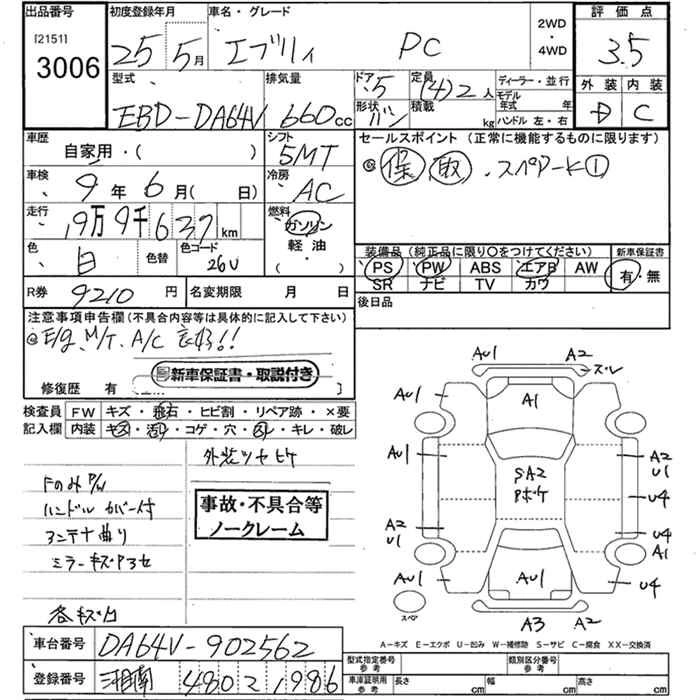 出品番号 初度登録年月 車名・グレード 2WD・4WD 評価点
[2151]
3006 25年 5月 エブリィ PC 3.5
型式 排気量 ドア 5 定員 (4)2人 ディーラー・並行 外装 内装
EBD-DA64V 660cc 形状 バン 積載 kg モデル年式 年 D C
ハンドル 左・右
車歴 シフト セールスポイント (正常に機能するものに限ります)
自家用・( ) 5MT ◎保 取 . スペアキー①
車検 9年 6月( 日) 冷房 AC
走行 19万9千637km 燃料 ガソリン
軽油
( )
色 白 色替 色コード 26U
装備品 (純正品に限り○をつけてください) 新車保証書
PS PW ABS エアB AW 有・無
SR ナビ TV カワ
R券 9210円 名変期限 月 日 後日品
注意事項申告欄(不具合内容等は具体的に記入して下さい)
◎E/g. M/T. A/C 良好!!
新車保証書・取説付き
修復歴 有 [ ]
検査員 FW キズ・飛石・ヒビ割・リペア跡・×要
記入欄 内装 キズ・汚レ・コゲ・穴・スレ・キレ・破レ
外装ツヤヒケ
FのみP/W
ハンドルカバー付
アンテナ曲り
ミラーキズ
各キズ凹
事故・不具合等
ノークレーム
AU1 A2
ズレ
AU1 A1 AU1
AU1 A2
U1
SA2
Pボケ
U4
A2
U1
U4
A1
AU1 AU1 U4
スペア
A3 A2
A－キズ E－エクボ U－凹み W－補修跡 S－サビ C－腐食 XX－交換済
車台番号 DA64V-902562
登録番号 湘南 480 2 1986
型式指定番号 参考 類別区分番号 参考
車庫証明用 参考 長さ cm 幅 cm 高さ cm